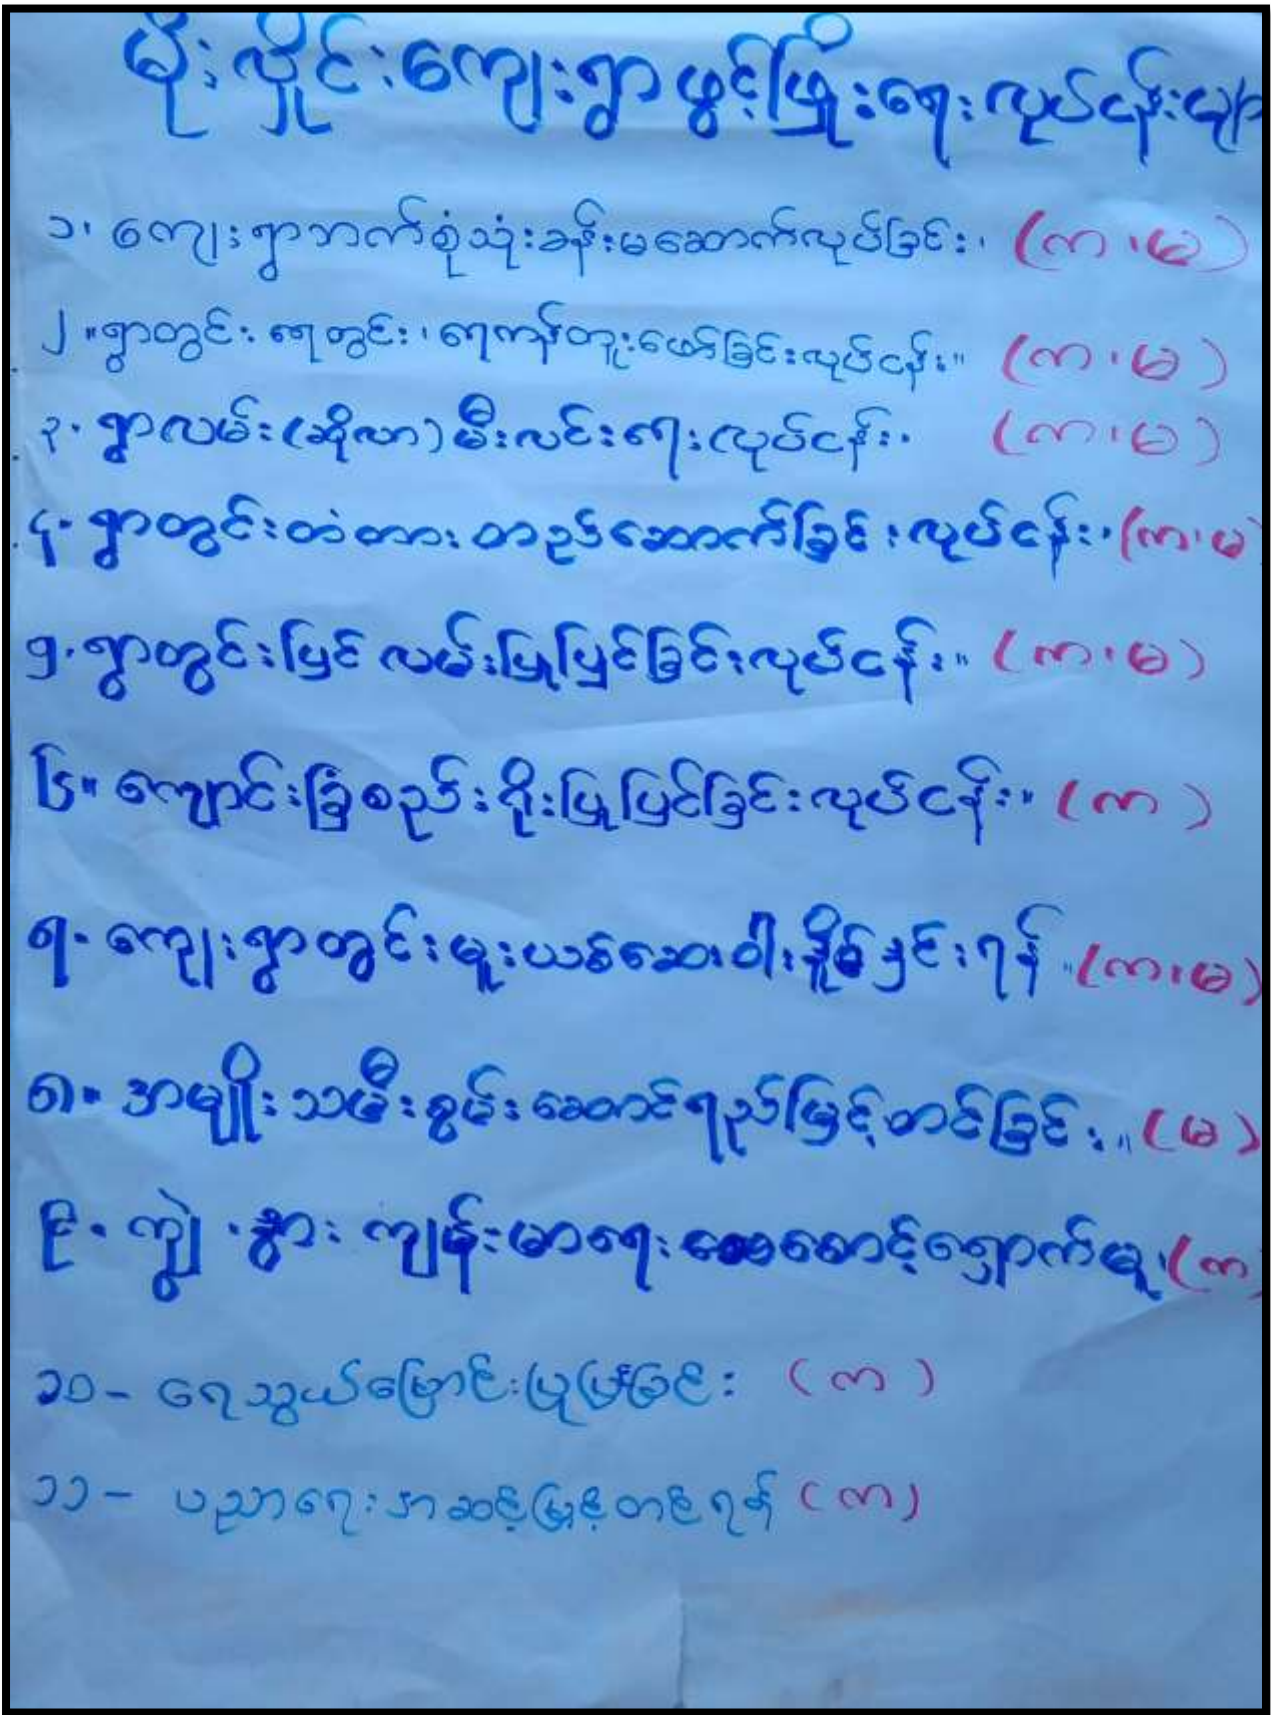 မိုးလှိုင်းကျေးရွာဖွင့်ဖြိုးရေးလုပ်ငန်းများ
၁၊ ကျေးရွာဘက်စုံသုံးခန်းမဆောက်လုပ်ခြင်း၊ (က၊မ)
၂။ ရွာတွင်း ရေတွင်း၊ ရေကန်တူးဖော်ခြင်းလုပ်ငန်း။ (က၊မ)
၃. ရွာလမ်း(ဆိုလာ)မီးလင်းရေးလုပ်ငန်း. (က၊မ)
၄. ရွာတွင်းတံတား တည်ဆောက်ခြင်းလုပ်ငန်း. (က၊မ
၅. ရွာတွင်းပြင် လမ်းပြုပြင်ခြင်းလုပ်ငန်း။ (က၊မ)
၆။ ကျောင်းခြံစည်းရိုးပြုပြင်ခြင်းလုပ်ငန်း။ (က)
၇. ကျေးရွာတွင်းမူးယစ်ဆေးဝါးနှိမ်နှင်းရန်။ (က၊မ)
၈။ အမျိုးသမီးစွမ်းဆောင်ရည်မြှင့်တင်ခြင်း။ (မ)
၉. ကျွဲ .နွား ကျန်းမာရေး စောင့်ရှောက်မူ၊ (က)
၁၀- ရေသွယ်မြောင်းပြုပြင်ခြင်း (က)
၁၁- ပညာရေးအဆင့်မြှင့်တင်ရန် (က)